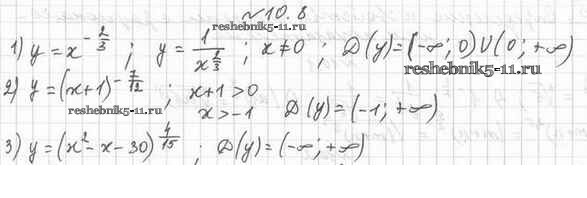 №10.8
reshebnik5-11.ru
1) y = x^(-2/3) ; y = 1/x^(2/3) ; x ≠ 0 ; D(y) = (-∞; 0) U (0; +∞)
reshebnik5-11.ru
2) y = (x+1)^(-7/12) ; x+1 > 0
reshebnik5-11.ru x > -1 D(y) = (-1; +∞)
3) y = (x² - x - 30)^(4/15) ; D(y) = (-∞; +∞)